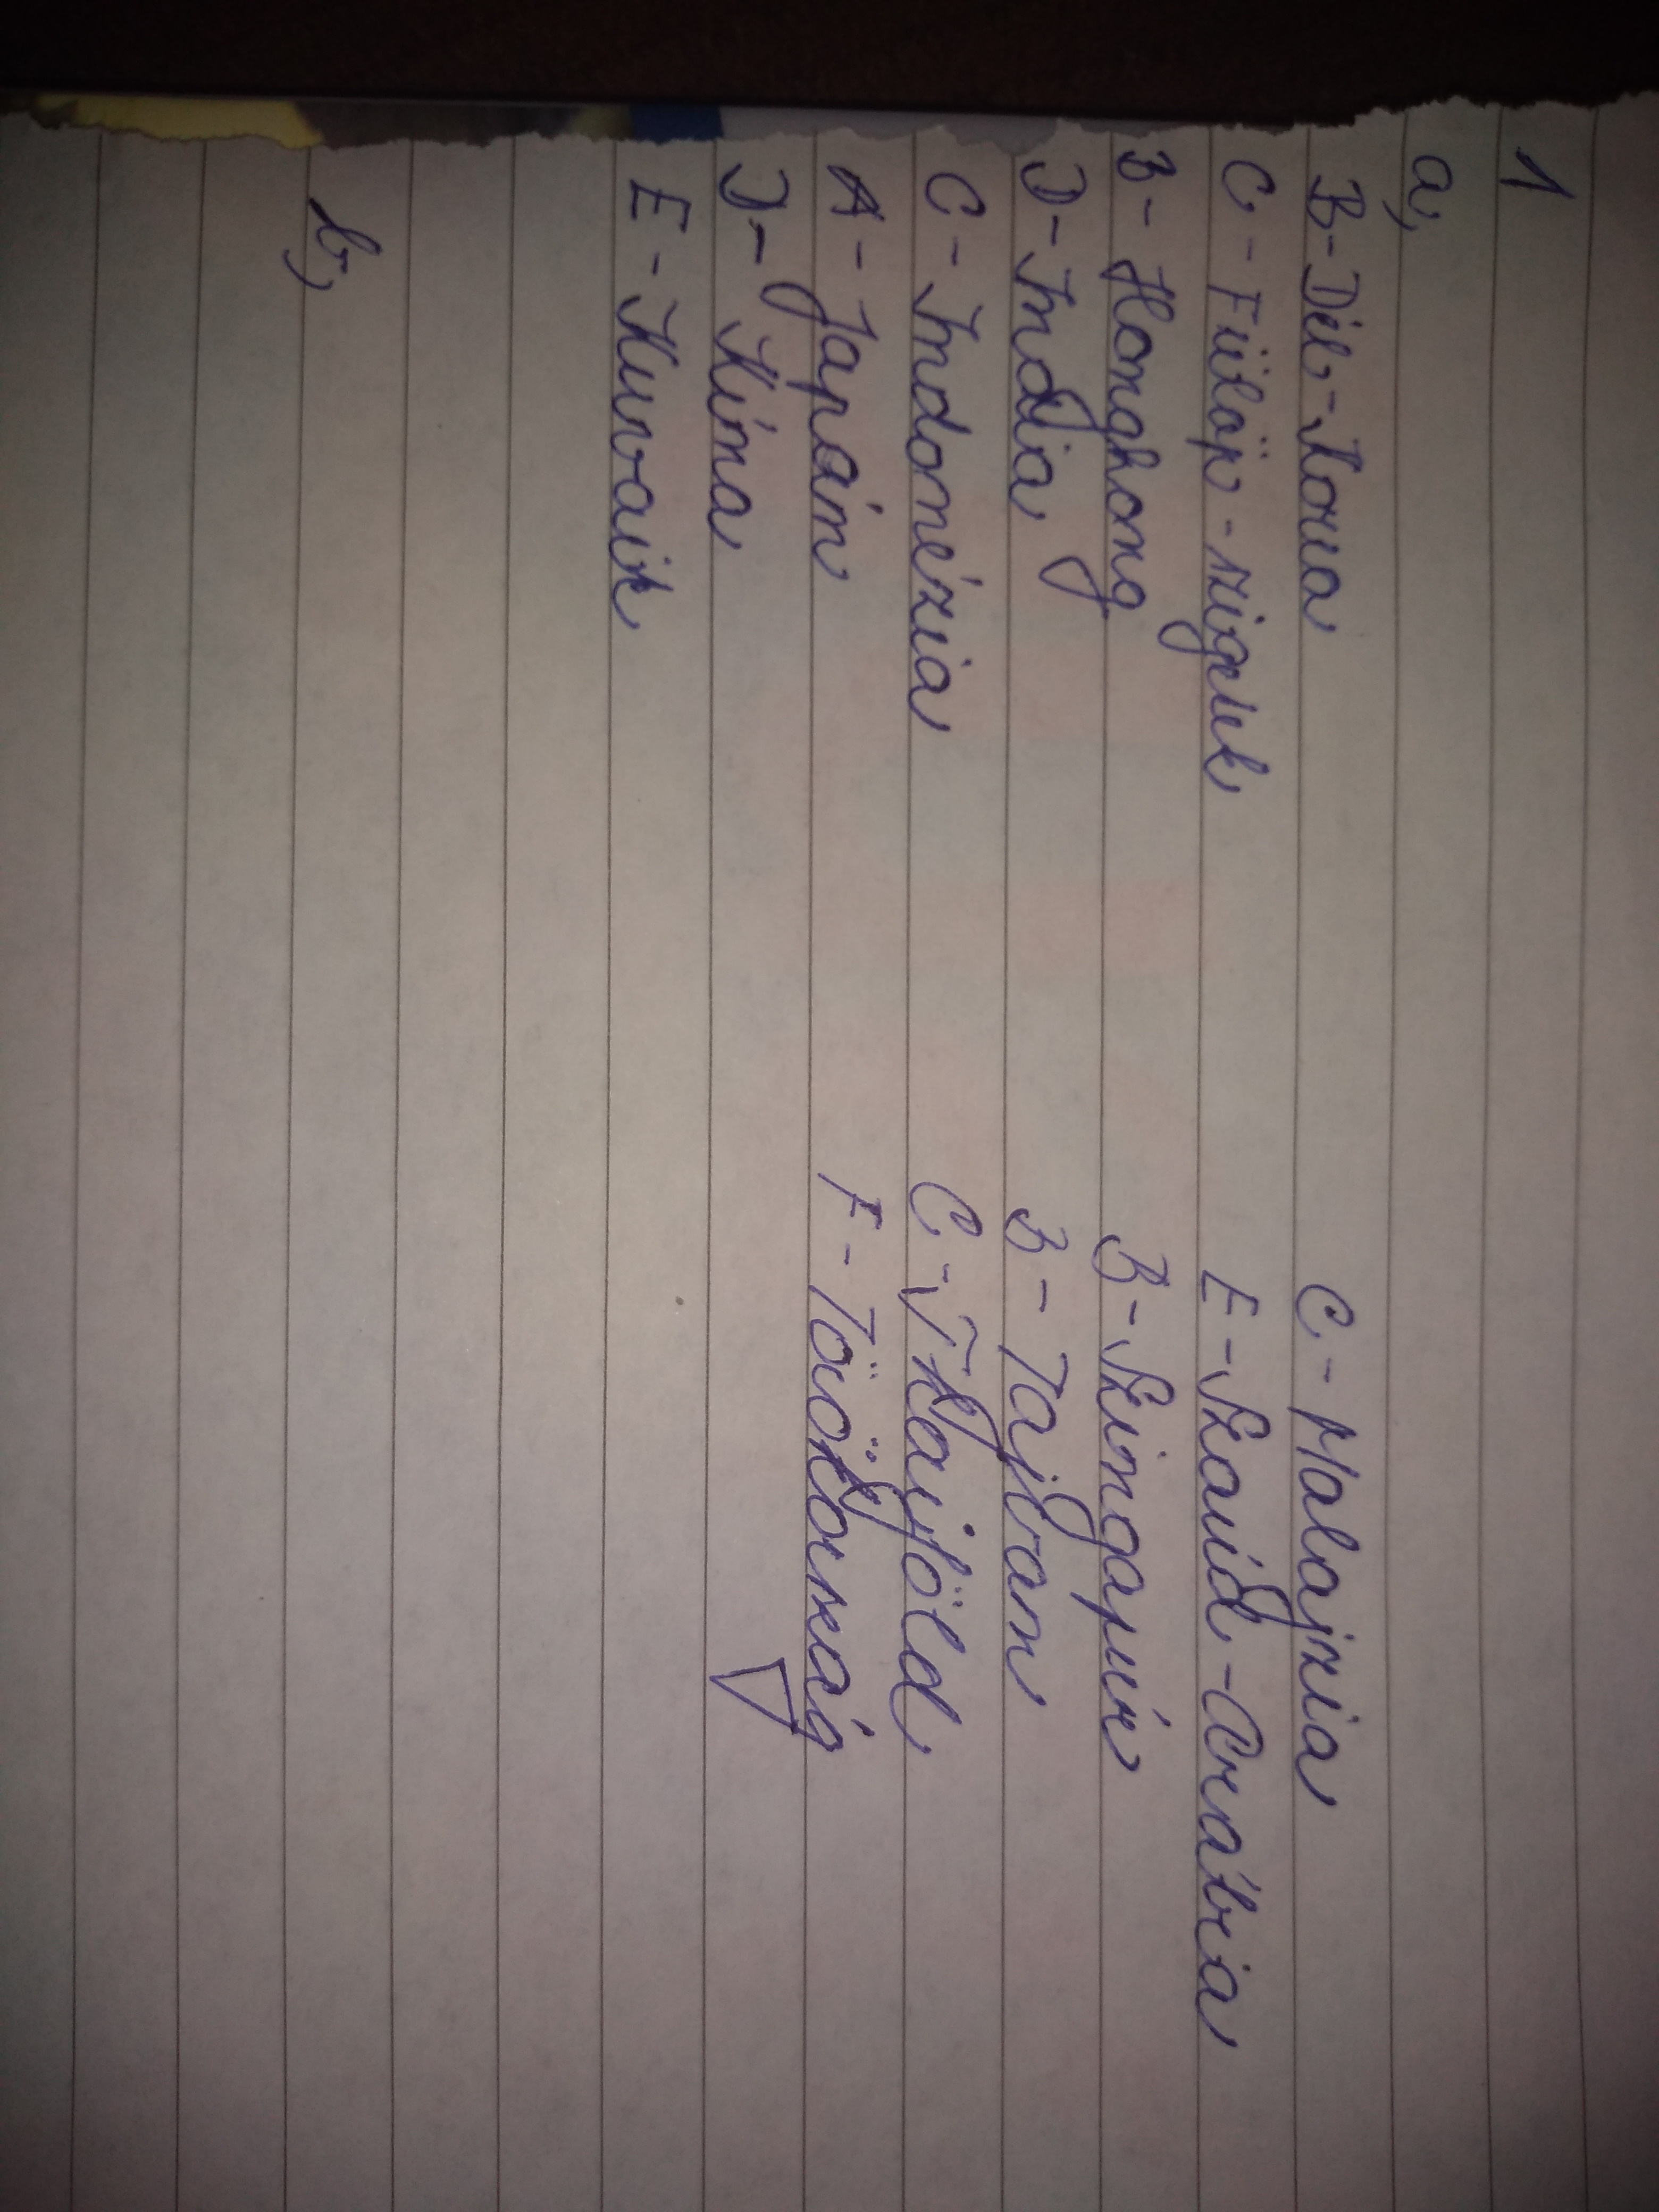 1
a,
B-Dél-Korea
C-Fülöp-szigetek
B-Hongkong
D-India
C-Indonézia
A-Japán
D-Kína
E-Kuvait
C-Malajzia
E-Szaúd-Arábia
B-Szingapúr
B-Tajvan
C-Thaiföld
F-Törökország
b,